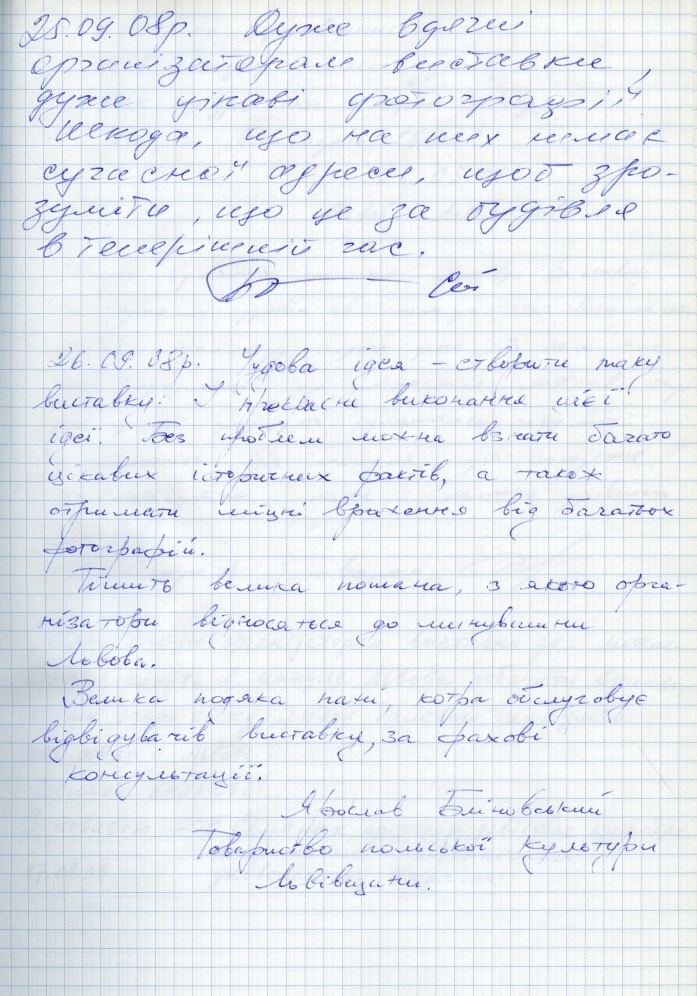 25.09.08р. Дуже вдячні
організаторам виставки,
дуже цікаві фотографії
Шкода, що на них немає
сучасної адреси, щоб зро-
зуміти, що це за будівля
в теперішній час.
26.09.08р. Чудова ідея – створити таку
виставку! І прекрасне виконання цієї
ідеї. Без проблем можна взнати багато
цікавих історичних фактів, а також
отримати міцні враження від багатьох
фотографій.
Тішить велика пошана, з якою орга-
нізатори відносяться до минувшини
Львова.
Велика подяка пані, котра обслуговує
відвідувачів виставки, за фахові
консультації.
Ярослав Бліновський
Товариство польської культури
Львівщини.